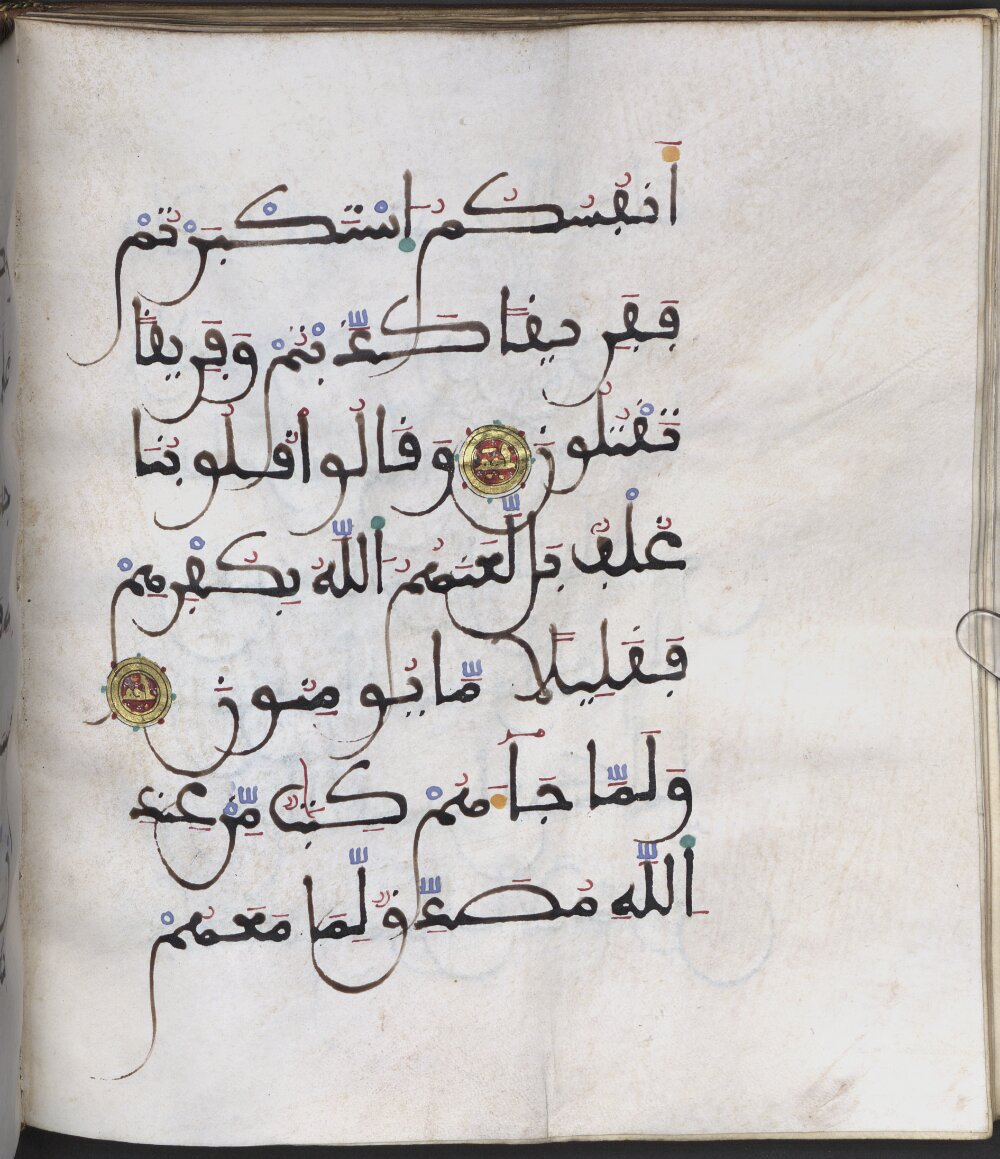 أَنفُسُكُمُ اِسْتَكْبَرْتُمْ
فَفَرِيقًا كَذَّبْتُمْ وَفَرِيقًا
تَقْتُلُونَ وَقَالُوا قُلُوبُنَا
غُلْفٌ بَل لَّعَنَهُمُ اَللَّهُ بِكُفْرِهِمْ
فَقَلِيلًا مَّا يُومِنُونَ
وَلَمَّا جَآءَهُمْ كِتَٰبٌ مِّنْ عِندِ
اِللَّهِ مُصَدِّقٌ لِّمَا مَعَهُمْ